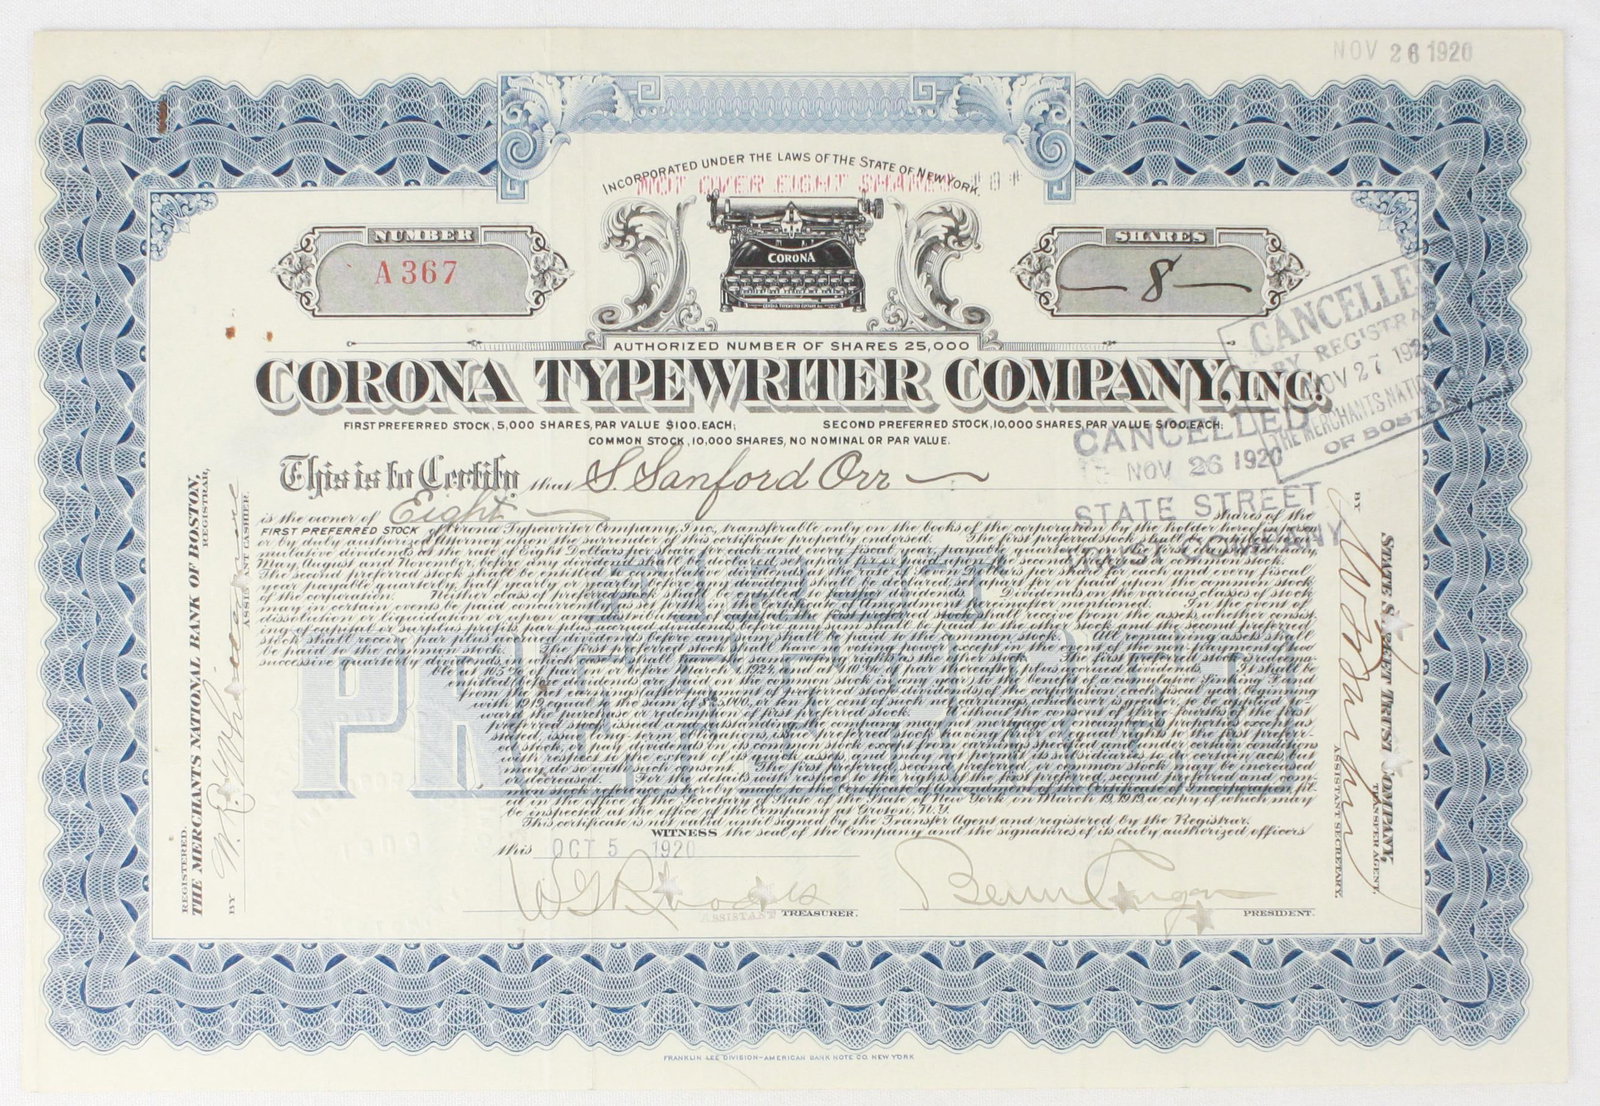 NOV 26 1920
INCORPORATED UNDER THE LAWS OF THE STATE OF NEW YORK.
NOT OVER EIGHT SHARES * 8 *
NUMBER
A367
CORONA
SHARES
8
AUTHORIZED NUMBER OF SHARES 25,000
CORONA TYPEWRITER COMPANY, INC.
FIRST PREFERRED STOCK, 5,000 SHARES, PAR VALUE $100. EACH; SECOND PREFERRED STOCK, 10,000 SHARES, PAR VALUE $100. EACH;
COMMON STOCK, 10,000 SHARES, NO NOMINAL OR PAR VALUE.
This is to Certify that S. Sanford Orr
is the owner of Eight shares of the
FIRST PREFERRED STOCK of Corona Typewriter Company, Inc., transferable only on the books of the corporation by the holder hereof in person
or by duly authorized attorney upon the surrender of this certificate properly endorsed. The first preferred stock shall be entitled to cu-
mulative dividends at the rate of Eight Dollars per share for each and every fiscal year, payable quarterly on the first days of February,
May, August and November, before any dividend shall be declared, set apart for or paid upon the second preferred stock or common stock.
The second preferred stock shall be entitled to
year, payable quarterly, half yearly or yearly, before any dividend shall be declared, set apart for or paid upon the common stock
of the corporation. Neither class of preferred stock shall be entitled to further dividends. Dividends on the various classes of stock
may in certain events be paid concurrently as set forth in the certificate of amendment hereinafter mentioned. In the event of
dissolution or liquidation or upon any distribution of capital, the first preferred stock shall receive from the assets, whether consist-
ing of capital or surplus profits, par plus accrued dividends before any amount shall be paid to the other stock, and the second preferred
stock shall receive par plus accrued dividends before any sum shall be paid to the common stock. All remaining assets shall
be paid to the common stock. The first preferred stock shall have no voting power except in the event of the non payment of two
successive quarterly dividends, in which case it shall have the same voting rights as the other stock. The first preferred stock is redeema-
ble at 105% of par before March 1, 1922 and at 110% of par thereafter, plus accrued dividends, and is
entitled (before dividends are paid on the common stock in any year) to the benefit of a cumulative Sinking Fund
from the net earnings (after payment of preferred stock dividends) of the corporation each fiscal year beginning
with 1919, equal to the sum of $15,000, or ten per cent of such earnings, whichever is greater, to be applied to-
ward the purchase or redemption of first preferred stock. Without the consent of 75% of the first
preferred stock issued and outstanding, the company may not mortgage or encumber its properties except as
stated, issue long term obligations, issue stock having priority over or equal to the first preferr-
ed stock, or pay dividends on its common stock, except from earnings specified and under certain conditions
with respect to the extent of its quick assets, and may not permit its subsidiaries to do certain acts, but
may do so with such consent. The first preferred, second preferred, or common stock may be increased
or decreased. For the details with respect to the rights of the first preferred, second preferred and com-
mon stock, reference is hereby made to the Certificate of Amendment of the Certificate of Incorporation, fil-
ed in the office of the Secretary of State of the State of New York, on March 19, 1919, a copy of which may
be inspected at the office of the Company, at Groton, N.Y.
This certificate is not valid until signed by the Transfer Agent and registered by the Registrar.
WITNESS the seal of the Company and the signatures of its duly authorized officers
this OCT 5 1920
ASSISTANT TREASURER.
PRESIDENT.
FIRST
PREFERRED
CANCELLED
BY REGISTRAR
NOV 27 1920
THE MERCHANTS NATIONAL
OF BOSTON
CANCELLED
NOV 26 1920
STATE STREET
TRUST COMPANY
REGISTERED.
THE MERCHANTS NATIONAL BANK OF BOSTON,
REGISTRAR,
BY
ASSISTANT CASHIER.
STATE STREET TRUST COMPANY,
TRANSFER AGENT.
BY
ASSISTANT SECRETARY.
FRANKLIN LEE DIVISION-AMERICAN BANK NOTE CO. NEW YORK